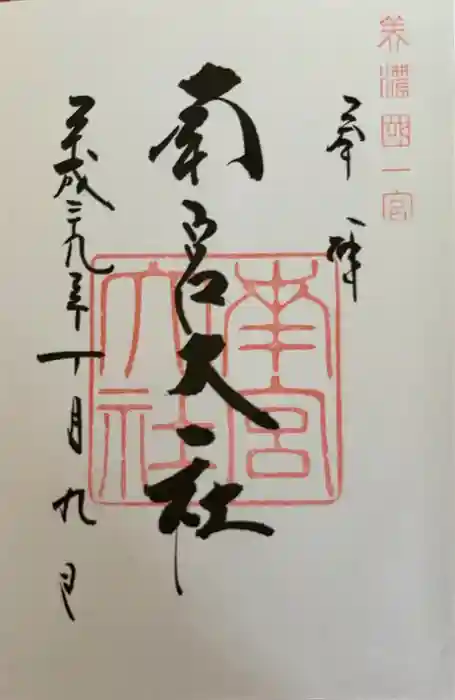 美濃國一宮
奉拝
南宮大社
南宮
大社
平成二九年十月九日